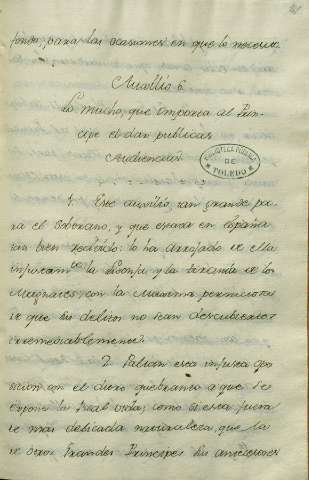 fondo, para las ocasiones en que le necesita
Auxilio 6.
Lo mucho, que importa al Prin-
cipe el dar publicas
Audiencias
BIBLIOTECA PUBLICA
DE
TOLEDO
1. Este auxilio, tan grande pa-
ra el Soberano, y que estaba en España
tan bien recibido: lo ha arrojado de ella
injustamte la lisonja y la tirania de los
Magnates, con la Maxima perniciosa
de que sus delitos no sean descubiertos
irremediablemente.
2. Palian esta injusta opo
sicion con el duro quebranto a que se
expone la Real vida; como si esta fuera
de mas delicada naturaleza, que la
de otros Grandes Principes sus antecesores